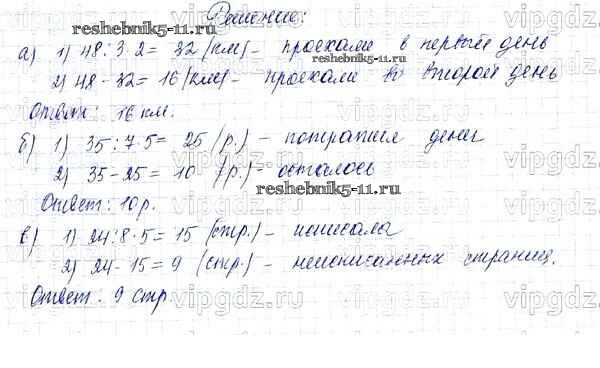 Решение:
а) 1) 48 : 3 · 2 = 32 (км) - проехали в первый день
2) 48 - 32 = 16 (км) - проехали во второй день
Ответ: 16 км.
б) 1) 35 : 7 · 5 = 25 (р.) - потратил денег
2) 35 - 25 = 10 (р.) - осталось
Ответ: 10 р.
в) 1) 24 : 8 · 5 = 15 (стр.) - исписала
2) 24 - 15 = 9 (стр.) - неисписанных страниц.
Ответ: 9 стр.
reshebnik5-11.ru
reshebnik5-11.ru
vipgdz.ru